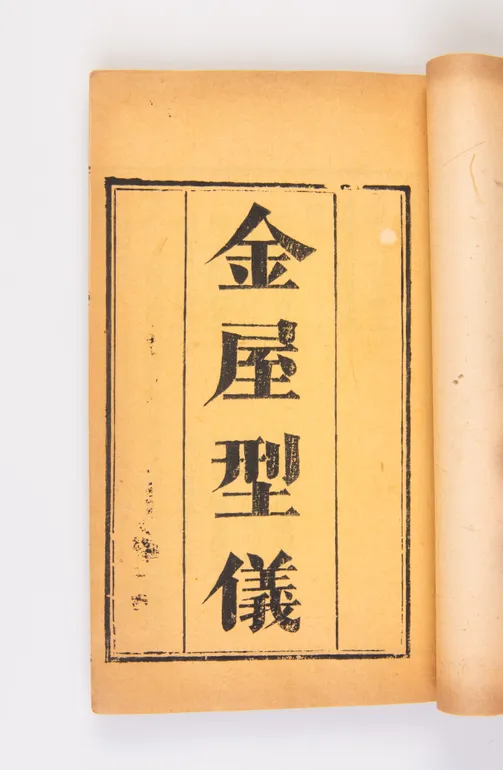 金屋型儀